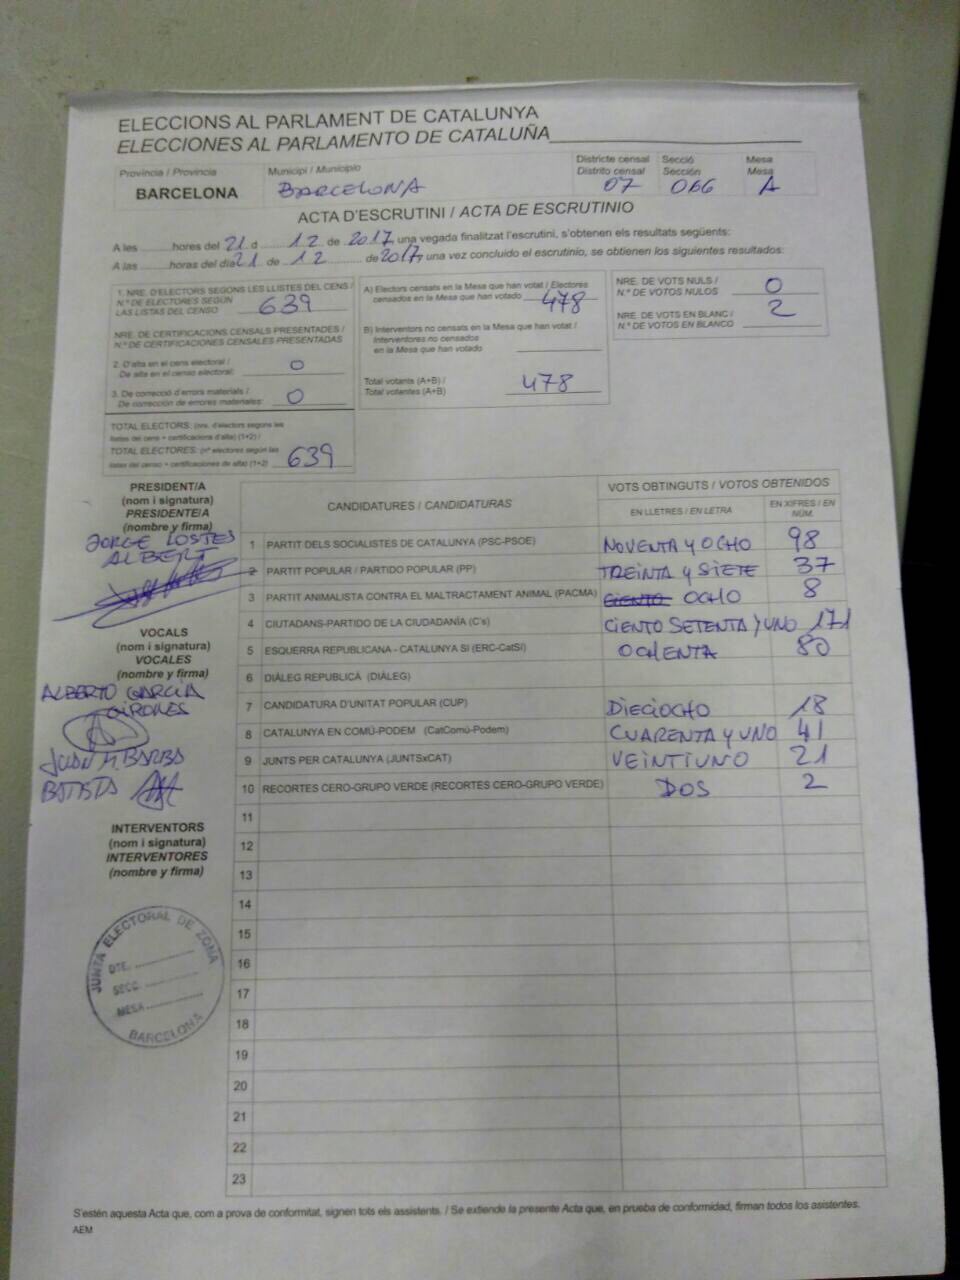 ELECCIONS AL PARLAMENT DE CATALUNYA
ELECCIONES AL PARLAMENTO DE CATALUÑA
Província / Provincia
BARCELONA
Municipi / Municipio
BARCELONA
Districte censal
Distrito censal
07
Secció
Sección
066
Mesa
Mesa
A
ACTA D'ESCRUTINI / ACTA DE ESCRUTINIO
A les ........ hores del 21 d ...... 12 de 2017, una vegada finalitzat l'escrutini, s'obtenen els resultats següents:
A las ........ horas del día 21 de ... 12 ... de 2017, una vez concluido el escrutinio, se obtienen los siguientes resultados:
1. NRE. D'ELECTORS SEGONS LES LLISTES DEL CENS /
N.º DE ELECTORES SEGÚN
LAS LISTAS DEL CENSO
639
NRE. DE CERTIFICACIONS CENSALS PRESENTADES /
N.º DE CERTIFICACIONES CENSALES PRESENTADAS
2. D'alta en el cens electoral /
De alta en el censo electoral:
0
3. De correcció d'errors materials /
De corrección de errores materiales:
0
TOTAL ELECTORS: (nre. d'electors segons les
llistes del cens + certificacions d'alta) (1+2) /
TOTAL ELECTORES: (nº electores según las
listas del censo + certificaciones de alta) (1+2)
639
A) Electors censats en la Mesa que han votat / Electores
censados en la Mesa que han votado
478
B) Interventors no censats en la Mesa que han votat /
Interventores no censados
en la Mesa que han votado
Total votants (A+B) /
Total votantes (A+B)
478
NRE. DE VOTS NULS /
N.º DE VOTOS NULOS
0
NRE. DE VOTS EN BLANC /
N.º DE VOTOS EN BLANCO
2
PRESIDENT/A
(nom i signatura)
PRESIDENTE/A
(nombre y firma)
JORGE LOSTES
ALBERT
VOCALS
(nom i signatura)
VOCALES
(nombre y firma)
ALBERTO GARCÍA
GIRONES
JUAN M. BARBA
BATISTA
INTERVENTORS
(nom i signatura)
INTERVENTORES
(nombre y firma)
JUNTA ELECTORAL DE ZONA
DTE.
SECC.
MESA
BARCELONA
CANDIDATURES / CANDIDATURAS
VOTS OBTINGUTS / VOTOS OBTENIDOS
EN LLETRES / EN LETRA
EN XIFRES / EN NÚM.
1 PARTIT DELS SOCIALISTES DE CATALUNYA (PSC-PSOE) NOVENTA Y OCHO 98
2 PARTIT POPULAR / PARTIDO POPULAR (PP) TREINTA Y SIETE 37
3 PARTIT ANIMALISTA CONTRA EL MALTRACTAMENT ANIMAL (PACMA) CIENTO OCHO 8
4 CIUTADANS-PARTIDO DE LA CIUDADANÍA (C's) CIENTO SETENTA Y UNO 171
5 ESQUERRA REPUBLICANA - CATALUNYA SÍ (ERC-CatSí) OCHENTA 80
6 DIÀLEG REPUBLICÀ (DIÀLEG)
7 CANDIDATURA D'UNITAT POPULAR (CUP) DIECIOCHO 18
8 CATALUNYA EN COMÚ-PODEM (CatComú-Podem) CUARENTA Y UNO 41
9 JUNTS PER CATALUNYA (JUNTSxCAT) VEINTIUNO 21
10 RECORTES CERO-GRUPO VERDE (RECORTES CERO-GRUPO VERDE) DOS 2
11
12
13
14
15
16
17
18
19
20
21
22
23
S'estén aquesta Acta que, com a prova de conformitat, signen tots els assistents. / Se extiende la presente Acta que, en prueba de conformidad, firman todos los asistentes.
AEM